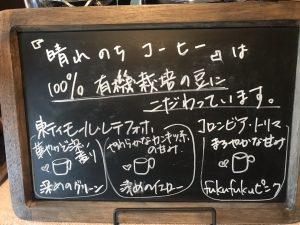 『晴れのちコーヒー』は
100% 有機栽培の豆に
こだわっています。
東ティモール・レテフォホ
華やかで深い香り
深めのグリーン
やわらかなカンキツ系の甘み
浅めのイエロー
コロンビア・トリマ
まろやかな甘み
fukufukuピンク